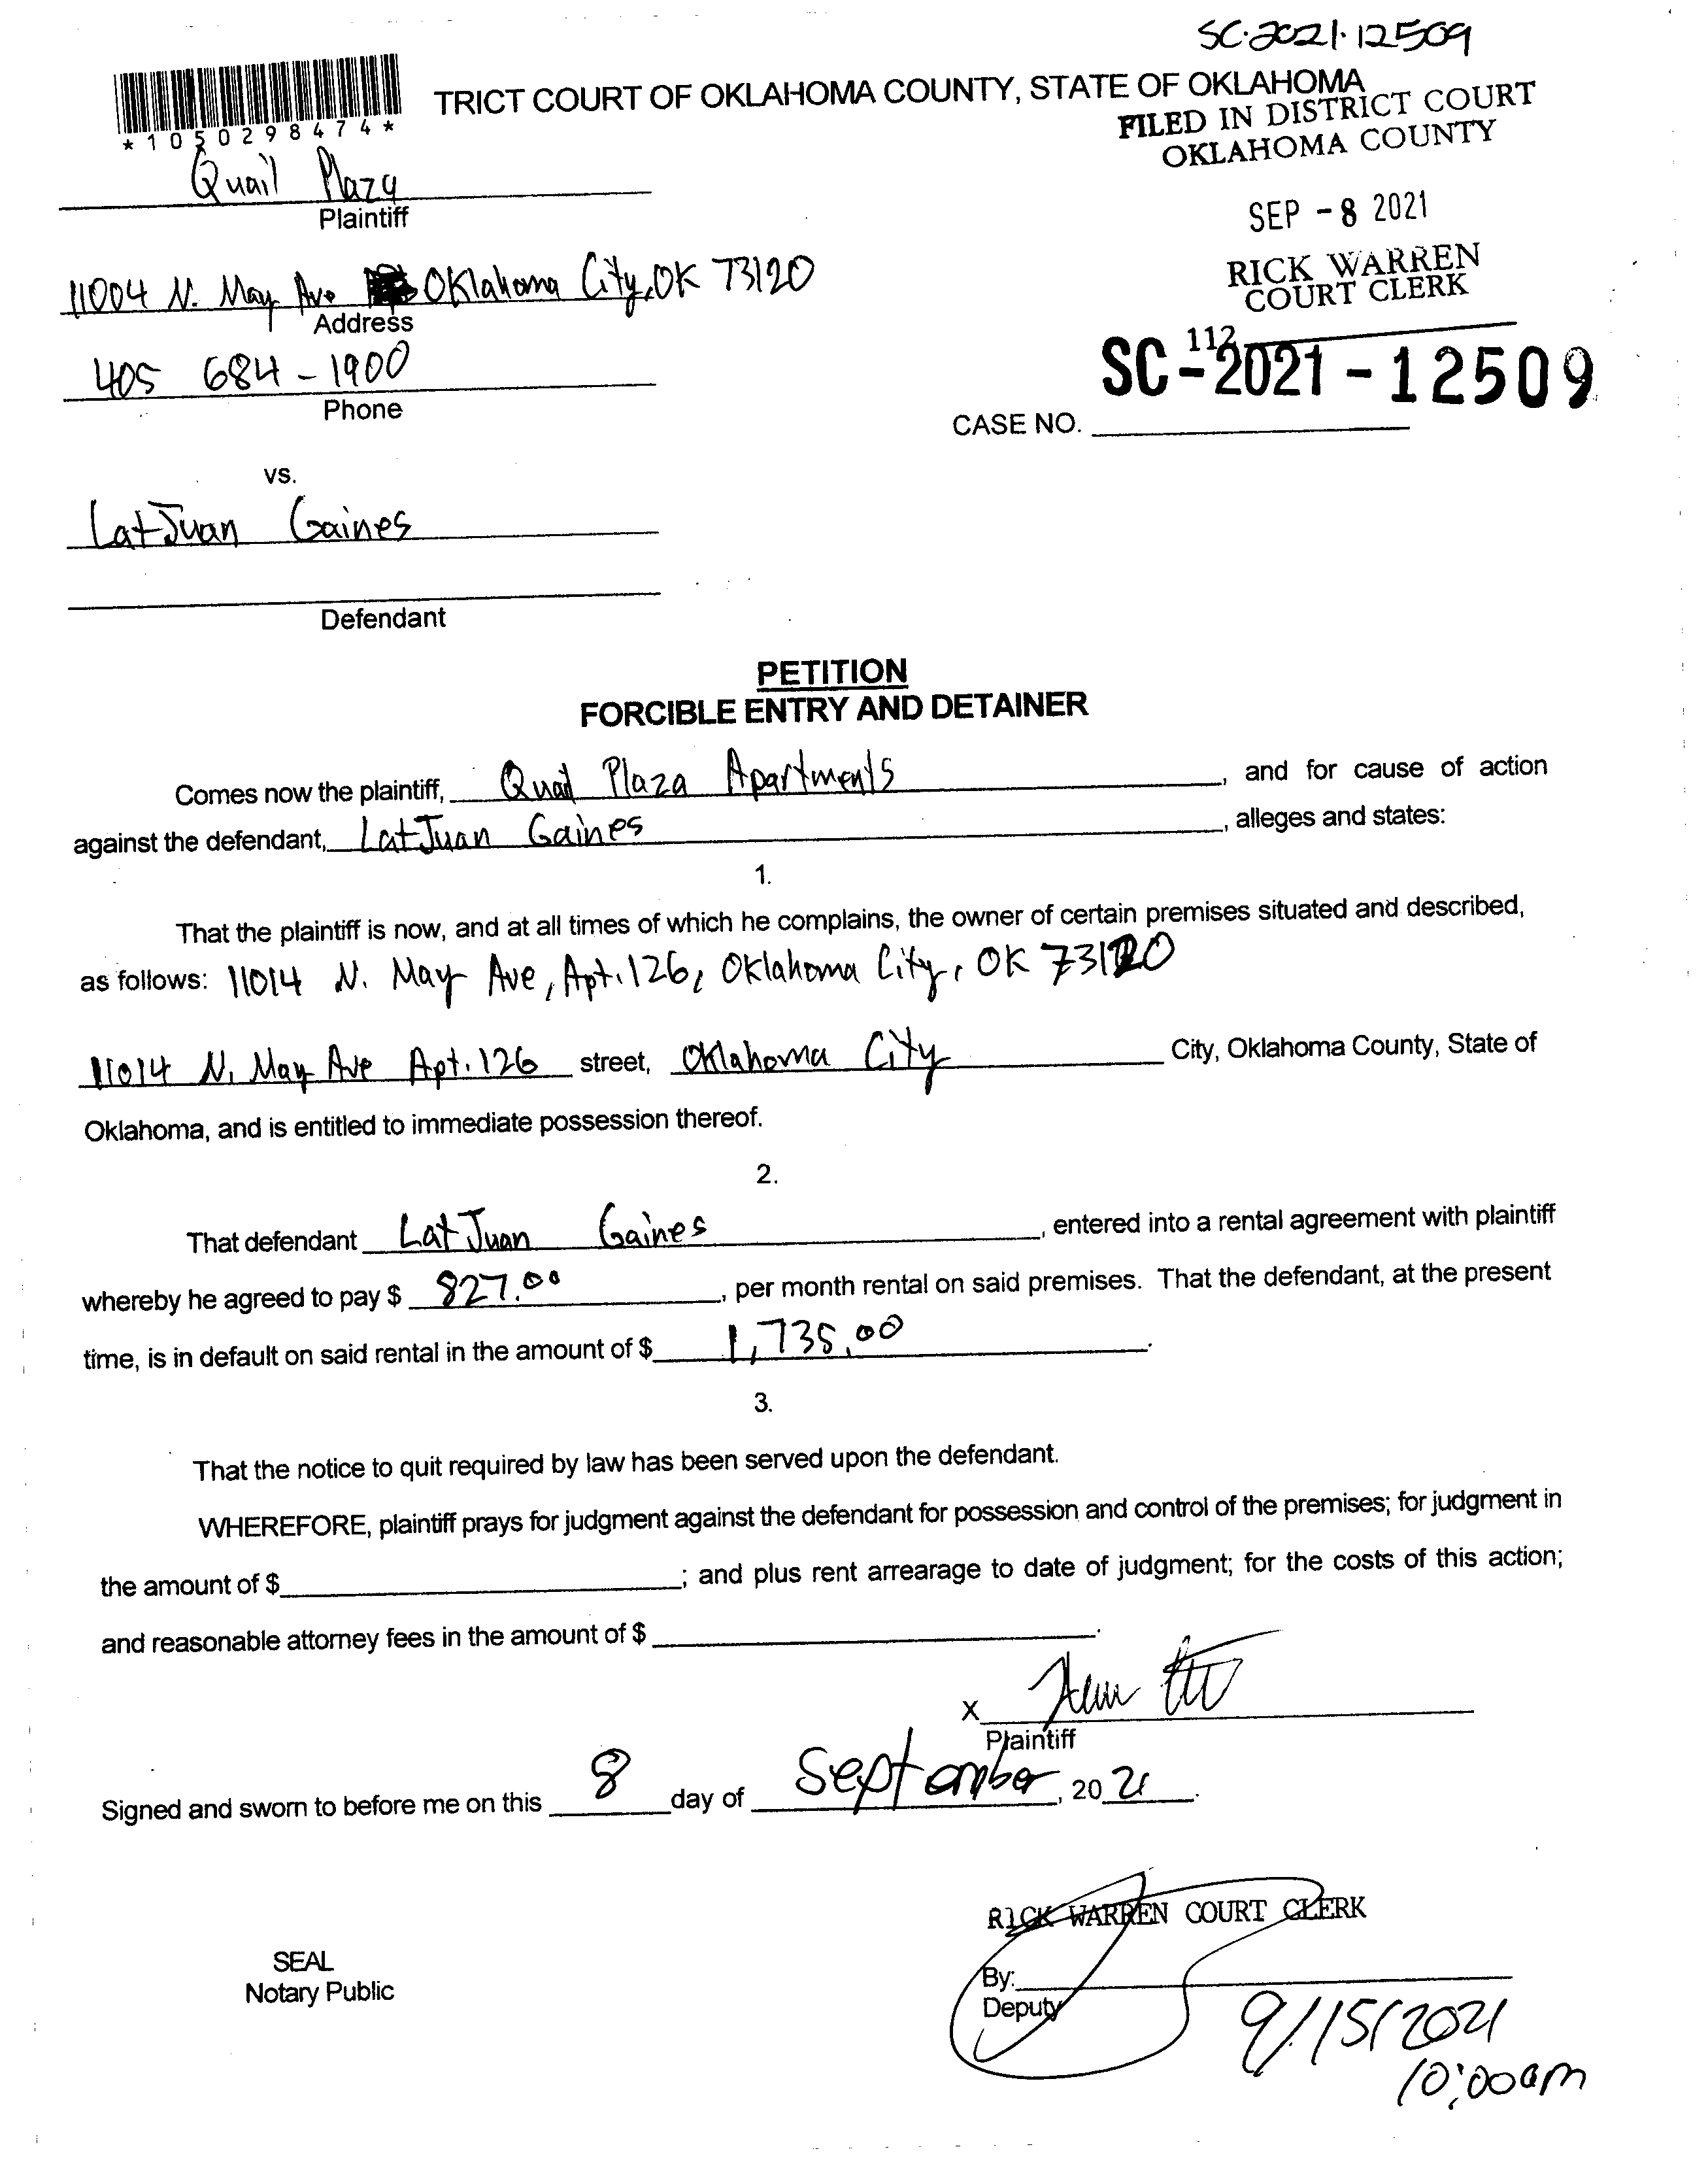 SC-2021-12509
TRICT COURT OF OKLAHOMA COUNTY, STATE OF OKLAHOMA
*1050298474*
FILED IN DISTRICT COURT
OKLAHOMA COUNTY
Quail Plaza
Plaintiff
SEP -8 2021
11004 N. May Ave Oklahoma City, OK 73120
Address
RICK WARREN
COURT CLERK
405 684-1900
Phone
112
SC-2021-12509
CASE NO.
vs.
LatJuan Gaines
Defendant
PETITION
FORCIBLE ENTRY AND DETAINER
Comes now the plaintiff, Quail Plaza Apartments, and for cause of action
against the defendant, LatJuan Gaines, alleges and states:
1.
That the plaintiff is now, and at all times of which he complains, the owner of certain premises situated and described,
as follows: 11014 N. May Ave, Apt. 126, Oklahoma City, OK 73120
11014 N. May Ave Apt. 126 street, Oklahoma City City, Oklahoma County, State of
Oklahoma, and is entitled to immediate possession thereof.
2.
That defendant LatJuan Gaines, entered into a rental agreement with plaintiff
whereby he agreed to pay $ 827.00, per month rental on said premises. That the defendant, at the present
time, is in default on said rental in the amount of $ 1,735.00.
3.
That the notice to quit required by law has been served upon the defendant.
WHEREFORE, plaintiff prays for judgment against the defendant for possession and control of the premises; for judgment in
the amount of $ ; and plus rent arrearage to date of judgment; for the costs of this action;
and reasonable attorney fees in the amount of $ .
X
Plaintiff
Signed and sworn to before me on this 8 day of September, 2021.
RICK WARREN COURT CLERK
SEAL
Notary Public
By:
Deputy
9/15/2021
10:00am